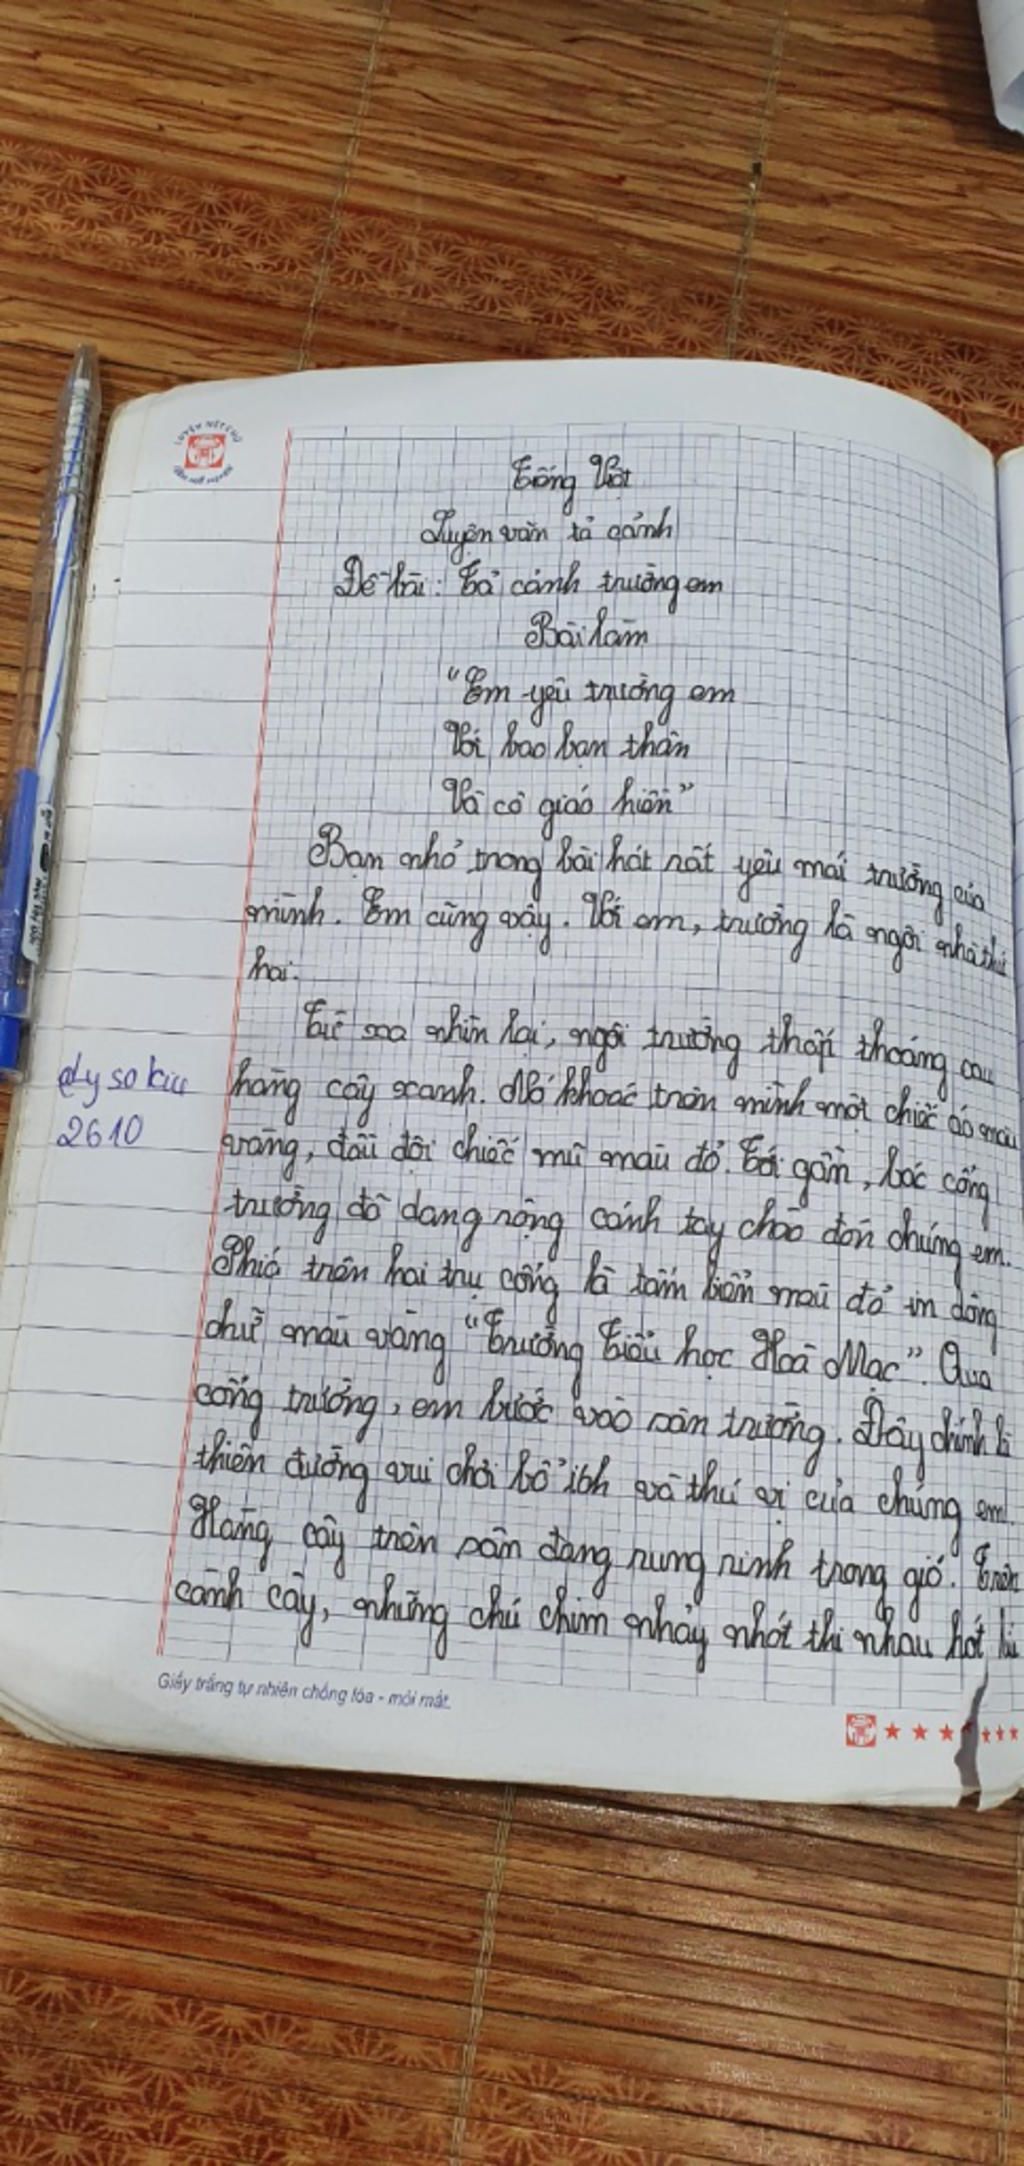 LUYỆN NÉT CHỮ
RÈN NẾT NGƯỜI
Tiếng Việt
Luyện văn tả cảnh
Đề bài: Tả cảnh trường em
Bài làm
"Em yêu trường em
Với bao bạn thân
Và cô giáo hiền"
Bạn nhỏ trong bài hát rất yêu mái trường của
mình. Em cũng vậy. Với em, trường là ngôi nhà thứ
hai.
Từ xa nhìn lại, ngôi trường thấp thoáng sau
hàng cây xanh. Nó khoác trên mình một chiếc áo màu
vàng, đầu đội chiếc mũ màu đỏ. Tới gần, bác cổng
trường đã dang rộng cánh tay chào đón chúng em.
Phía trên hai trụ cổng là tấm biển màu đỏ in dòng
chữ màu vàng "Trường Tiểu học Hoà Mạc". Qua
cổng trường, em bước vào sân trường. Đây chính là
thiên đường vui chơi bổ ích và thú vị của chúng em.
Hàng cây trên sân đang rung rinh trong gió. Trên
cành cây, những chú chim nhảy nhót thi nhau hót
Ly so kiu
2610
Giấy trắng tự nhiên chống lóa - mỏi mắt.